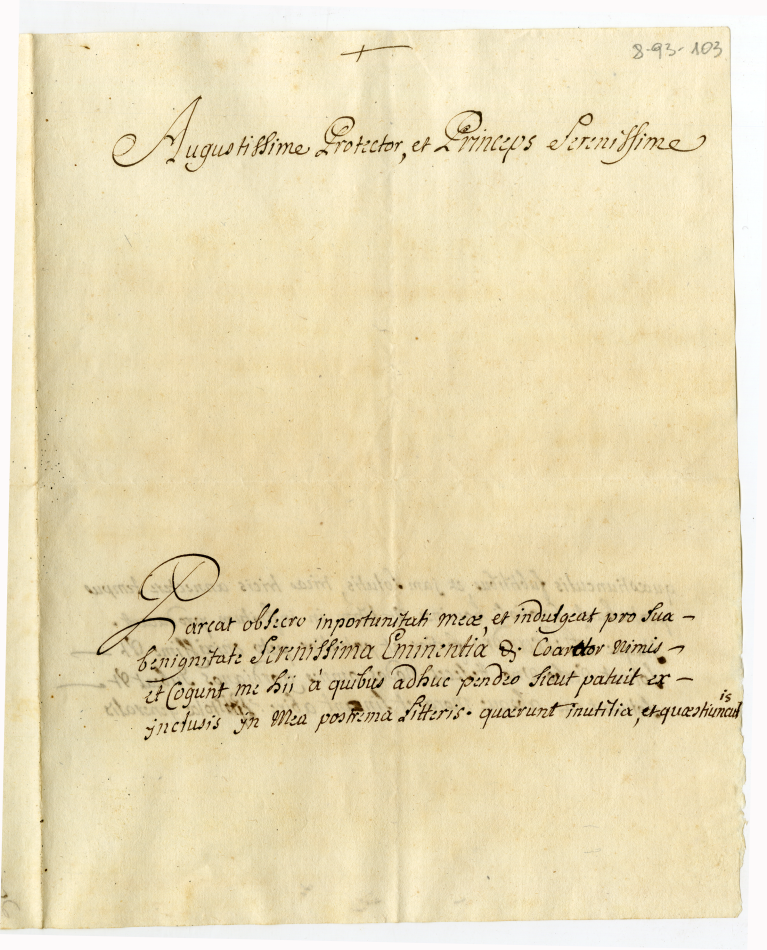 8-93-103
Augustissime Protector, et Princeps Serenissime
Parcat obsecro inportunitati meæ, et indulgeat pro sua
benignitate Serenissima Eminentia &; Coarctor nimis
et Cogunt me hii á quibus adhuc pendeo sicut patuit ex
ynclusis yn Mea postrema Litteris. quærunt inutilia, et quæstiunculis